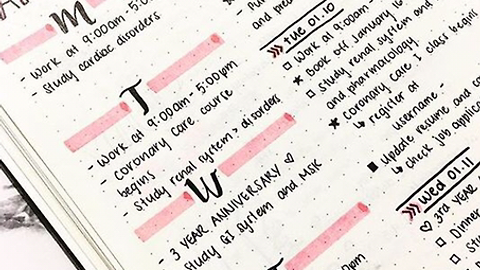 M
- Work at 9:00am - 5:0
- Study cardiac disorders
T
- Work at 9:00am - 5:00pm
- Coronary care course
begins
- Study renal system > disorders
W
- 3 YEAR ANNIVERSARY ♡
Study GI system and MSK
and
Tue 01.10
□ Work at 9:00am-
* Book off January 16
□ Study renal system and
and pharmacology
★ Coronary Care I class begins
↳ register at
username -
■ Update resume and co
↳ check job applica
Wed 01.11
♡ 3rd YEAR
□ Dinner
□ St